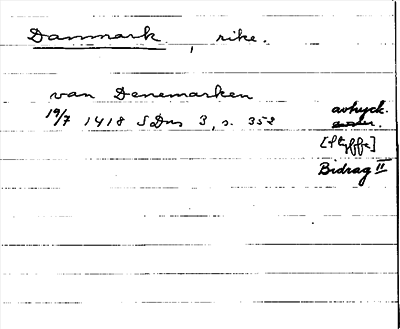 Danmark, rike.
van Denemarken
19/7 1418 SDns 3, s. 352
avtryck.
[Styffe]
Bidrag II